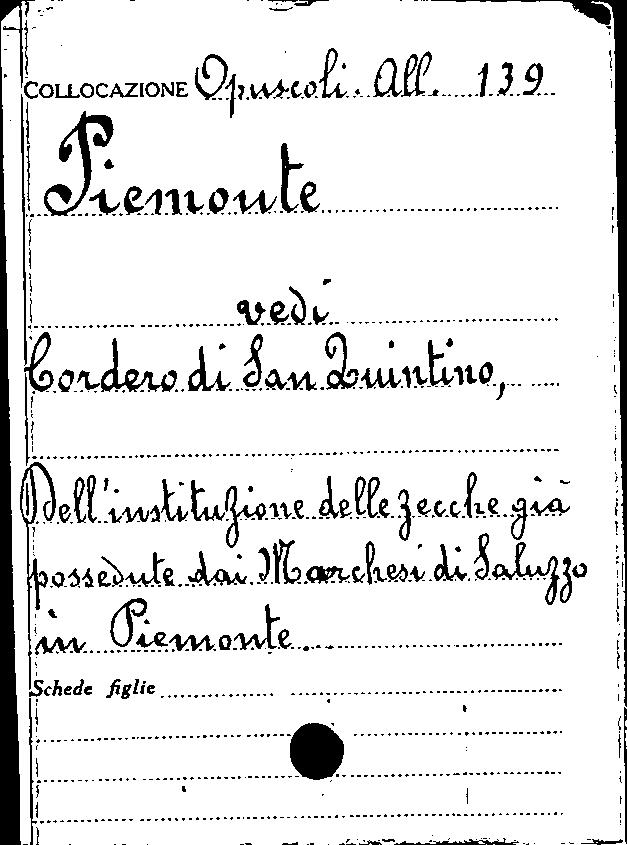 COLLOCAZIONE Opuscoli. All. 139
Piemonte
vedi
Cordero di San Quintino,
Dell'instituzione delle zecche già
possedute dai Marchesi di Saluzzo
in Piemonte.
Schede figlie